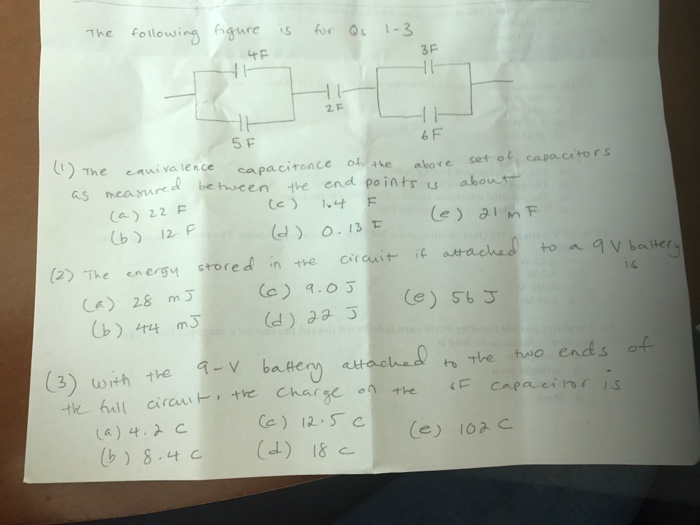 The following figure is for Qs 1-3
4F
3F
2F
5F
6F
(1) The equivalence capacitance of the above set of capacitors
as measured between the end points is about
(a) 22 F (c) 1.4 F (e) 21 mF
(b) 12 F (d) 0.13 F
(2) The energy stored in the circuit if attached to a 9V battery
is
(a) 28 mJ (c) 9.0 J (e) 56 J
(b) 44 mJ (d) 22 J
(3) with the 9-V battery attached to the two ends of
the full circuit, the charge on the 6F capacitor is
(a) 4.2 C (c) 12.5 C (e) 102 C
(b) 8.4 C (d) 18 C